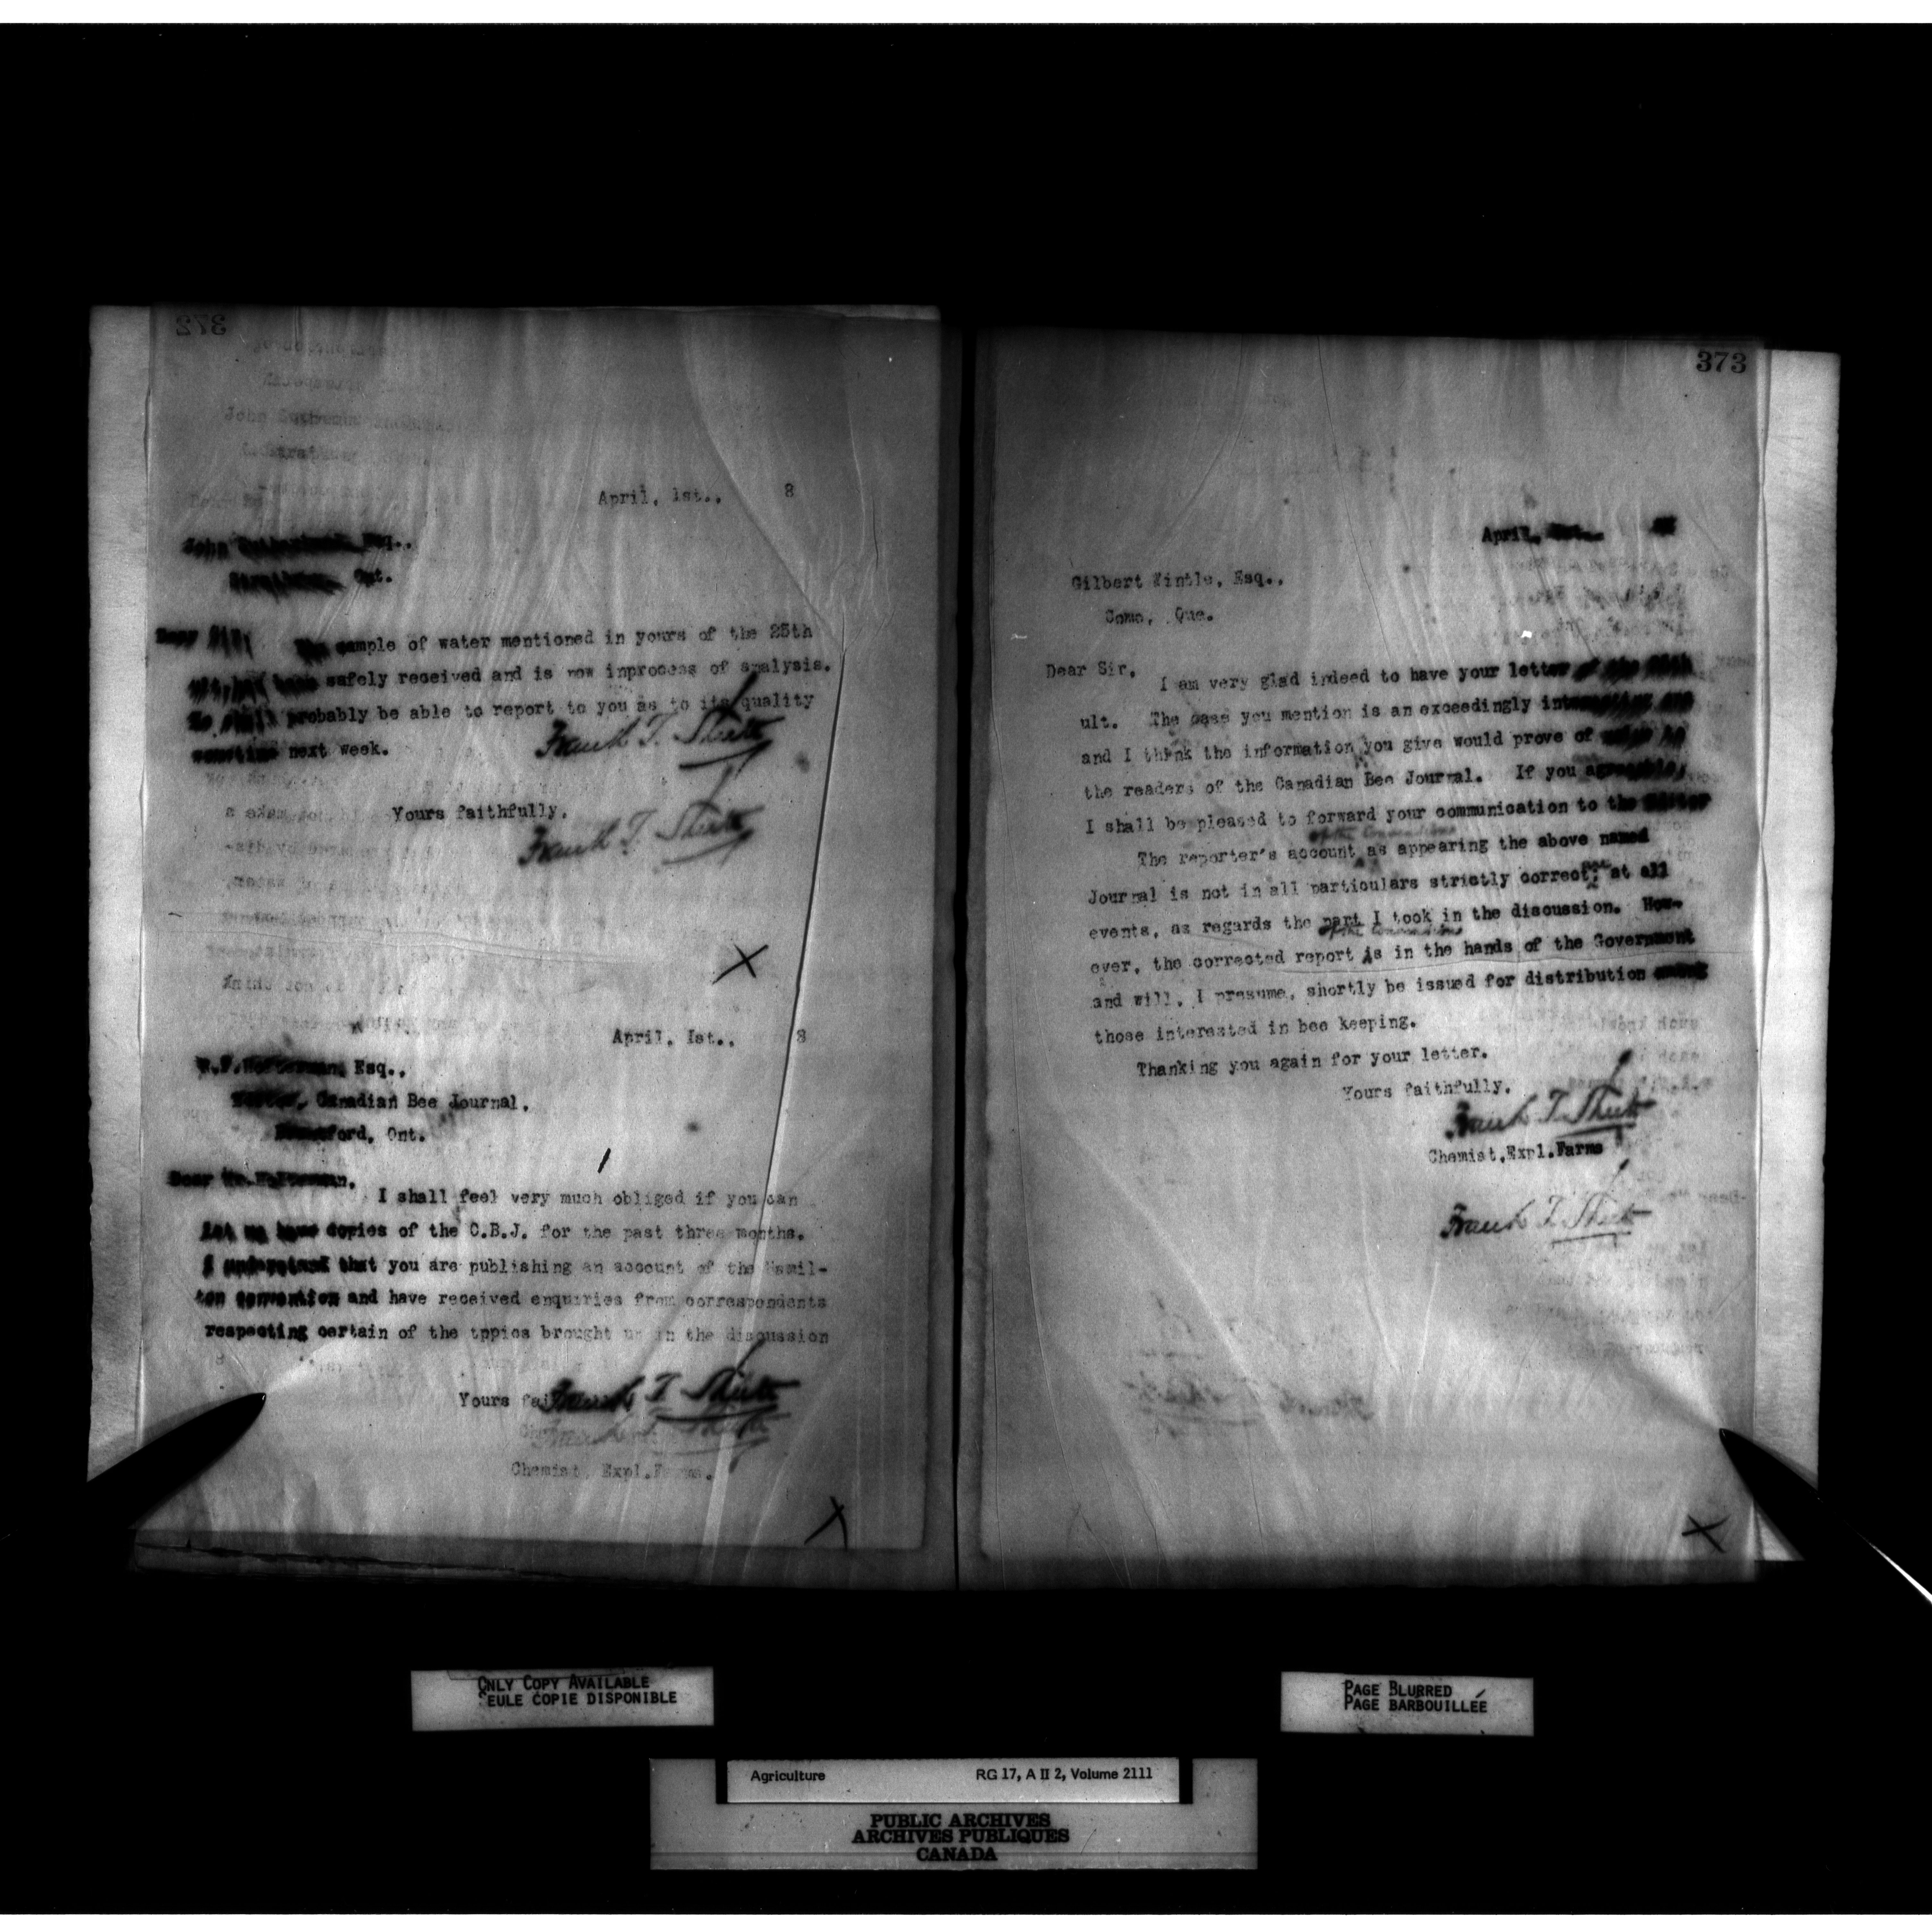 372
April, 1st.. 8
John Esq..
Ont.
Dear Sir, The sample of water mentioned in yours of the 25th
safely received and is now inprocess of analysis.
probably be able to report to you as to its quality
sometime next week.
Frank T. Shutt
Yours faithfully.
Frank T. Shutt
April, 1st.. 8
Esq..
Canadian Bee Journal.
Ont.
Dear Mr.
I shall feel very much obliged if you can
let me have copies of the C.B.J. for the past three months.
I understand that you are publishing an account of the Hamil-
ton convention and have received enquiries from correspondents
respecting certain of the tppics brought up in the discussion
Yours
Frank T. Shutt
Chemist, Expl.Farms.
373
April,
Gilbert Wintle, Esq..
Como, Que.
Dear Sir,
I am very glad indeed to have your letter of the
ult. The case you mention is an exceedingly interesting one
and I think the information you give would prove of
the readers of the Canadian Bee Journal. If you
I shall be pleased to forward your communication to the Editor
of the Convention
The reporter's account as appearing the above named
Journal is not in all particulars strictly correct, not at all
events, as regards the part I took in the discussion. How-
of the Convention
ever, the corrected report is in the hands of the Government
and will, I presume, shortly be issued for distribution
those interested in bee keeping.
Thanking you again for your letter.
Yours faithfully.
Frank T. Shutt
Chemist,Expl.Farms
Frank T. Shutt
ONLY COPY AVAILABLE
SEULE COPIE DISPONIBLE
PAGE BLURRED
PAGE BARBOUILLÉE
Agriculture RG 17, A II 2, Volume 2111
PUBLIC ARCHIVES
ARCHIVES PUBLIQUES
CANADA